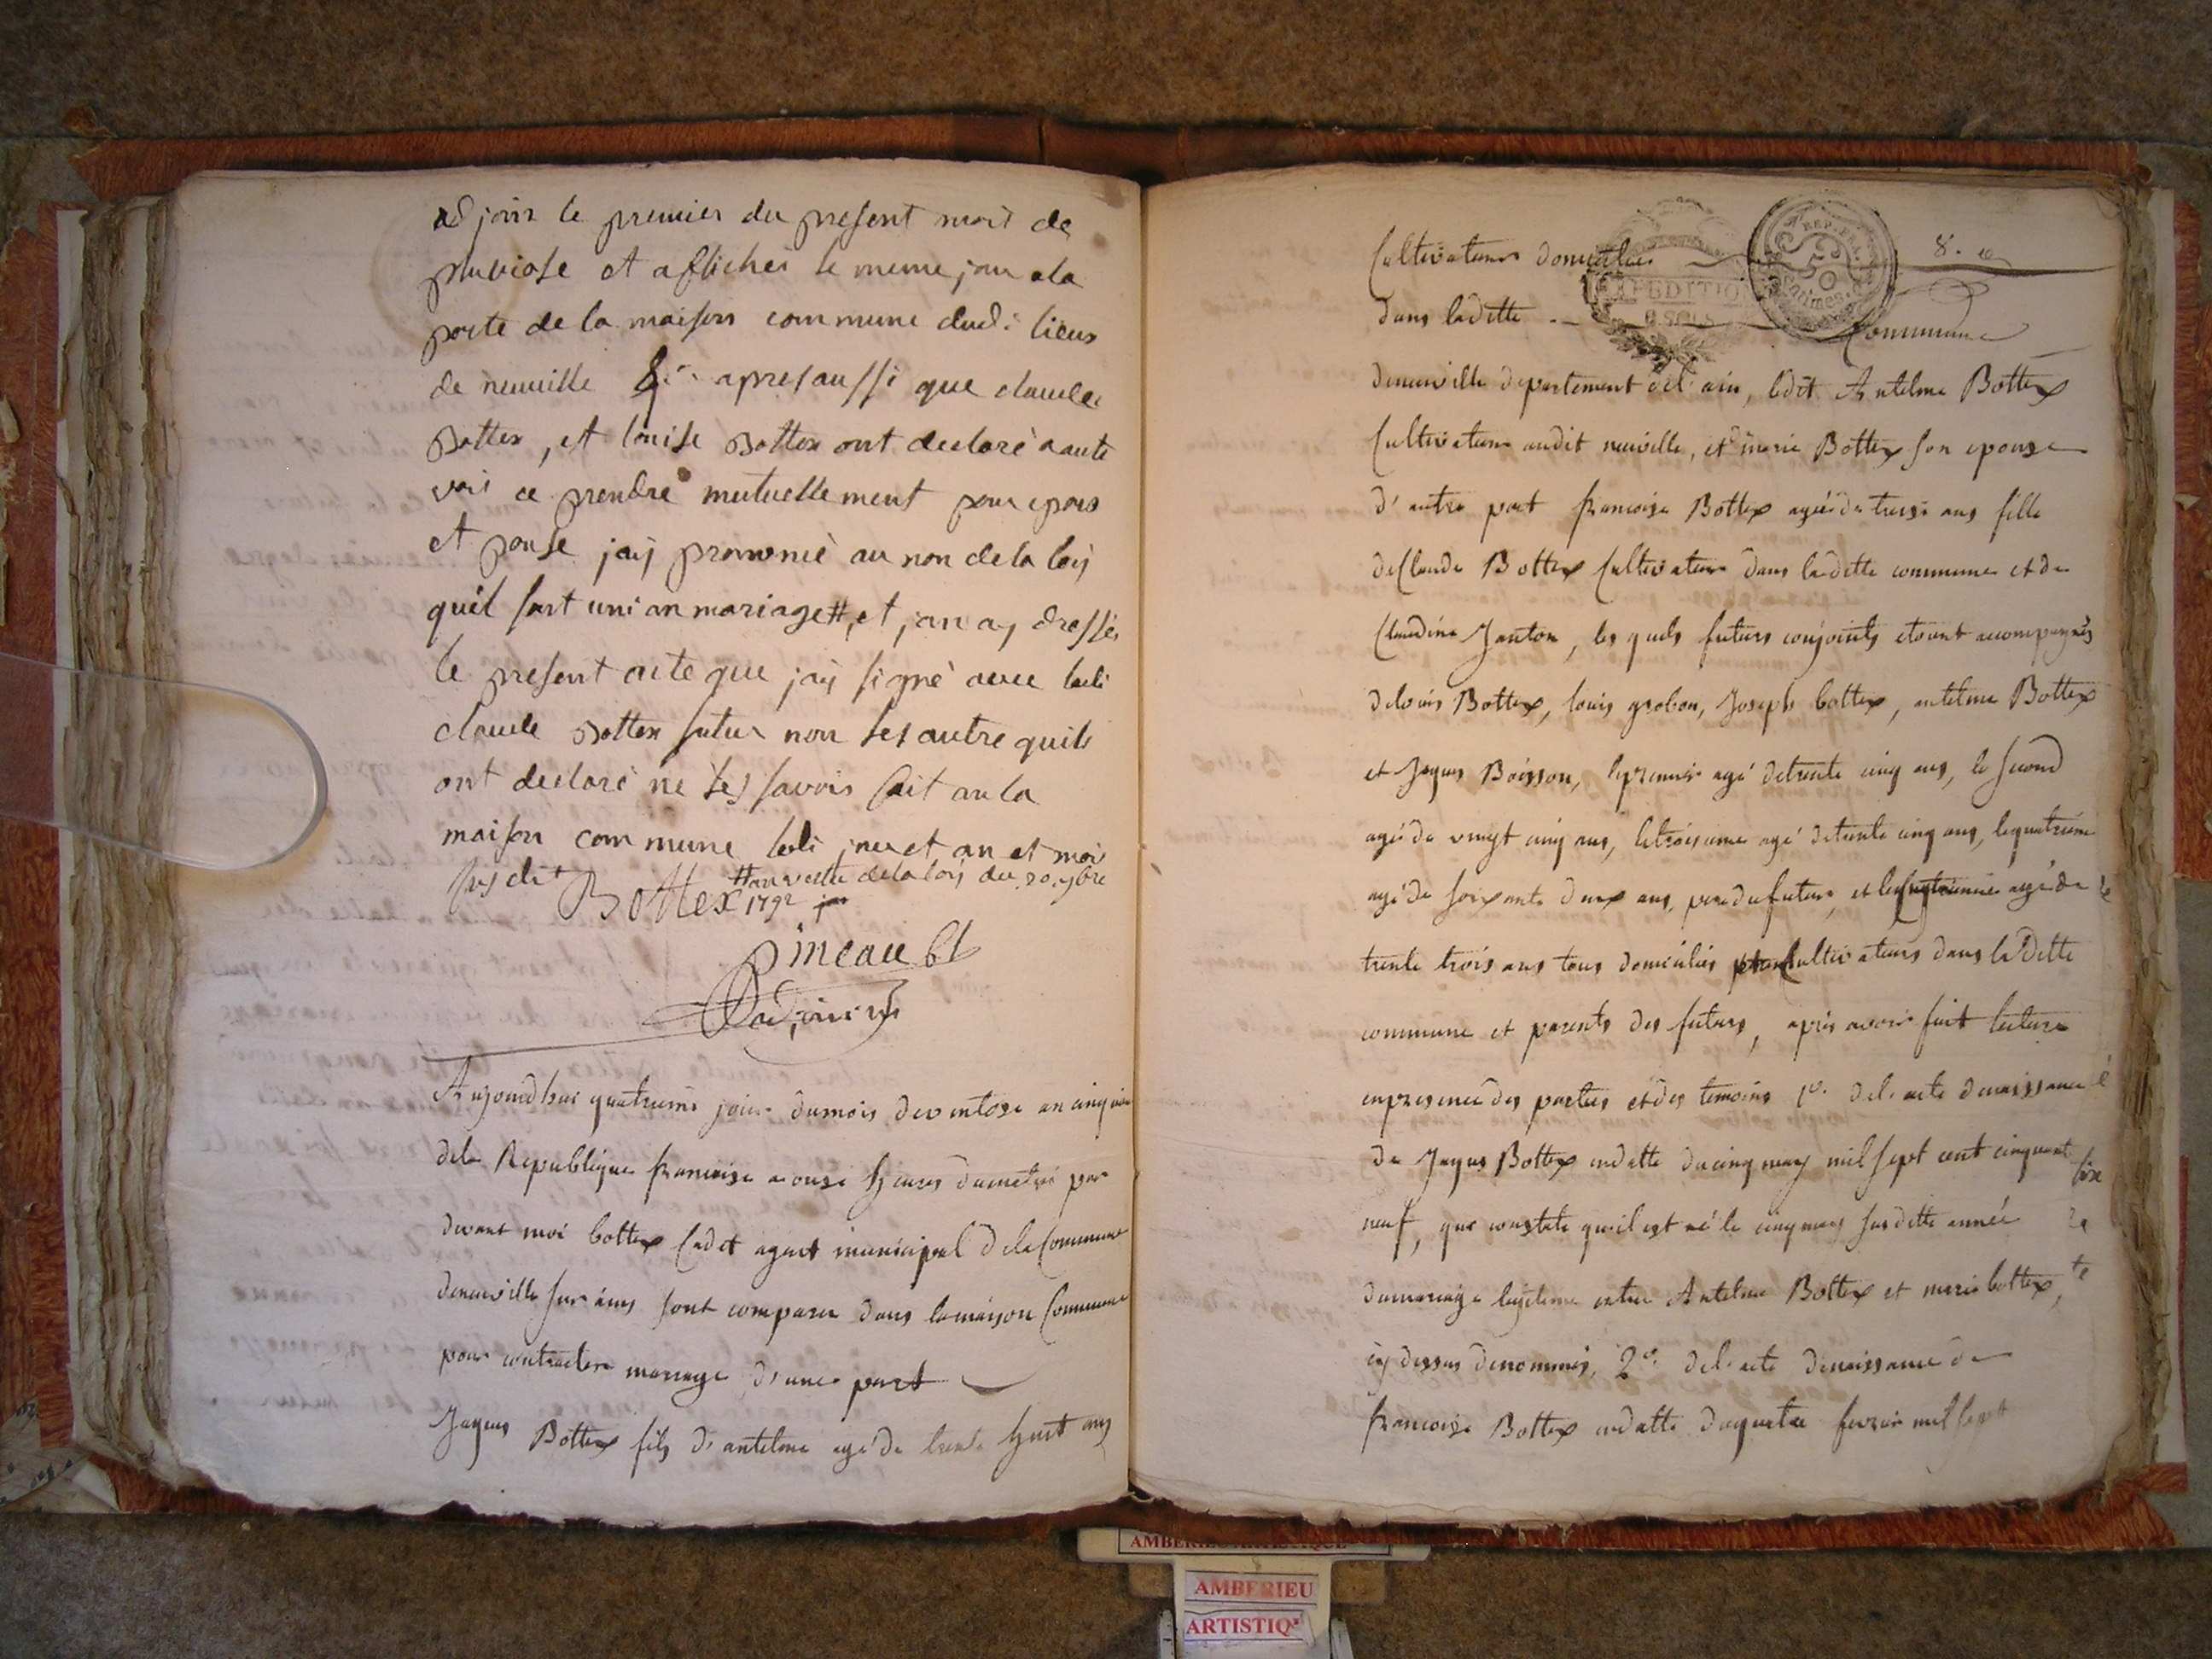 adjoin le premier du present mois de
pluviose et affichés le meme jour a la
porte de la maison commune dudi lieux
de neuville apres aussi que claude
Bottex, et louise Bottex ont declaré aaute
voix ce prendre mutuellement pour epous
et pouse jaÿ prononcé au non de la loÿ
quil sont uni an mariage #, et jan ay dressés
le present acte que jaÿ signé avec ledi
claude Bottex futur non les autre quils
ont declaré ne les savoir fait an la
maison commune ledi jour et an et mois
susdit
# an vertu de la loÿ du 20 7bre
1792
Bottex
Pineau
adjoint
Aujourd'hui quatrieme jour dumois deventose an cinquie
dela Republique francoise a onze heures dumatin par
devant moi bottex Cadet agent municipal dela Commune
deneuville sur ains sont comparu dans lamaison Commune
pour contracter mariage d'une part
Jaques Bottex fils d'antelme agé de trente huit ans
8.
REP. FRA.
50
Centimes
EXPEDITION
8 SOLS
Cultivateur domicilié
dans ladette Commune
deneuville departement del'ain, ledit Antelme Bottex
Cultivateur audit neuville, et marie Bottex son epouse
d'autre part francoise Bottex agée de treise ans fille
deClaude Bottex Cultivateur dans ladette commune et de
Claudine Janton, les quels futurs conjoints etoient accompagnés
delouis Bottex, louis grobon, Joseph bottex, antelme Bottex
et Jaques Boisson, lepremier agé detrente cinq ans, le second
agé de vingt cinq ans, letroisieme agé detrente cinq ans, lequatrieme
agé de soixante deux ans, pere du futur, et le agé de
trente trois ans tous domiciliés Cultivateurs dans ladette
commune et parents des futurs, après avoir fait lecture
enpresence des parties et des temoins 1º. del'acte denaissance
de Jaques Bottex endatte ducinq mars mil sept cent cinquante
neuf, que constate qu'il est né le cinq mars susdette année
dumariage legitime entre Antelme Bottex et marie bottex,
cy dessus denommés, 2º. del'acte denaissance de
francoise Bottex endatte duquatre fevrier mil sept